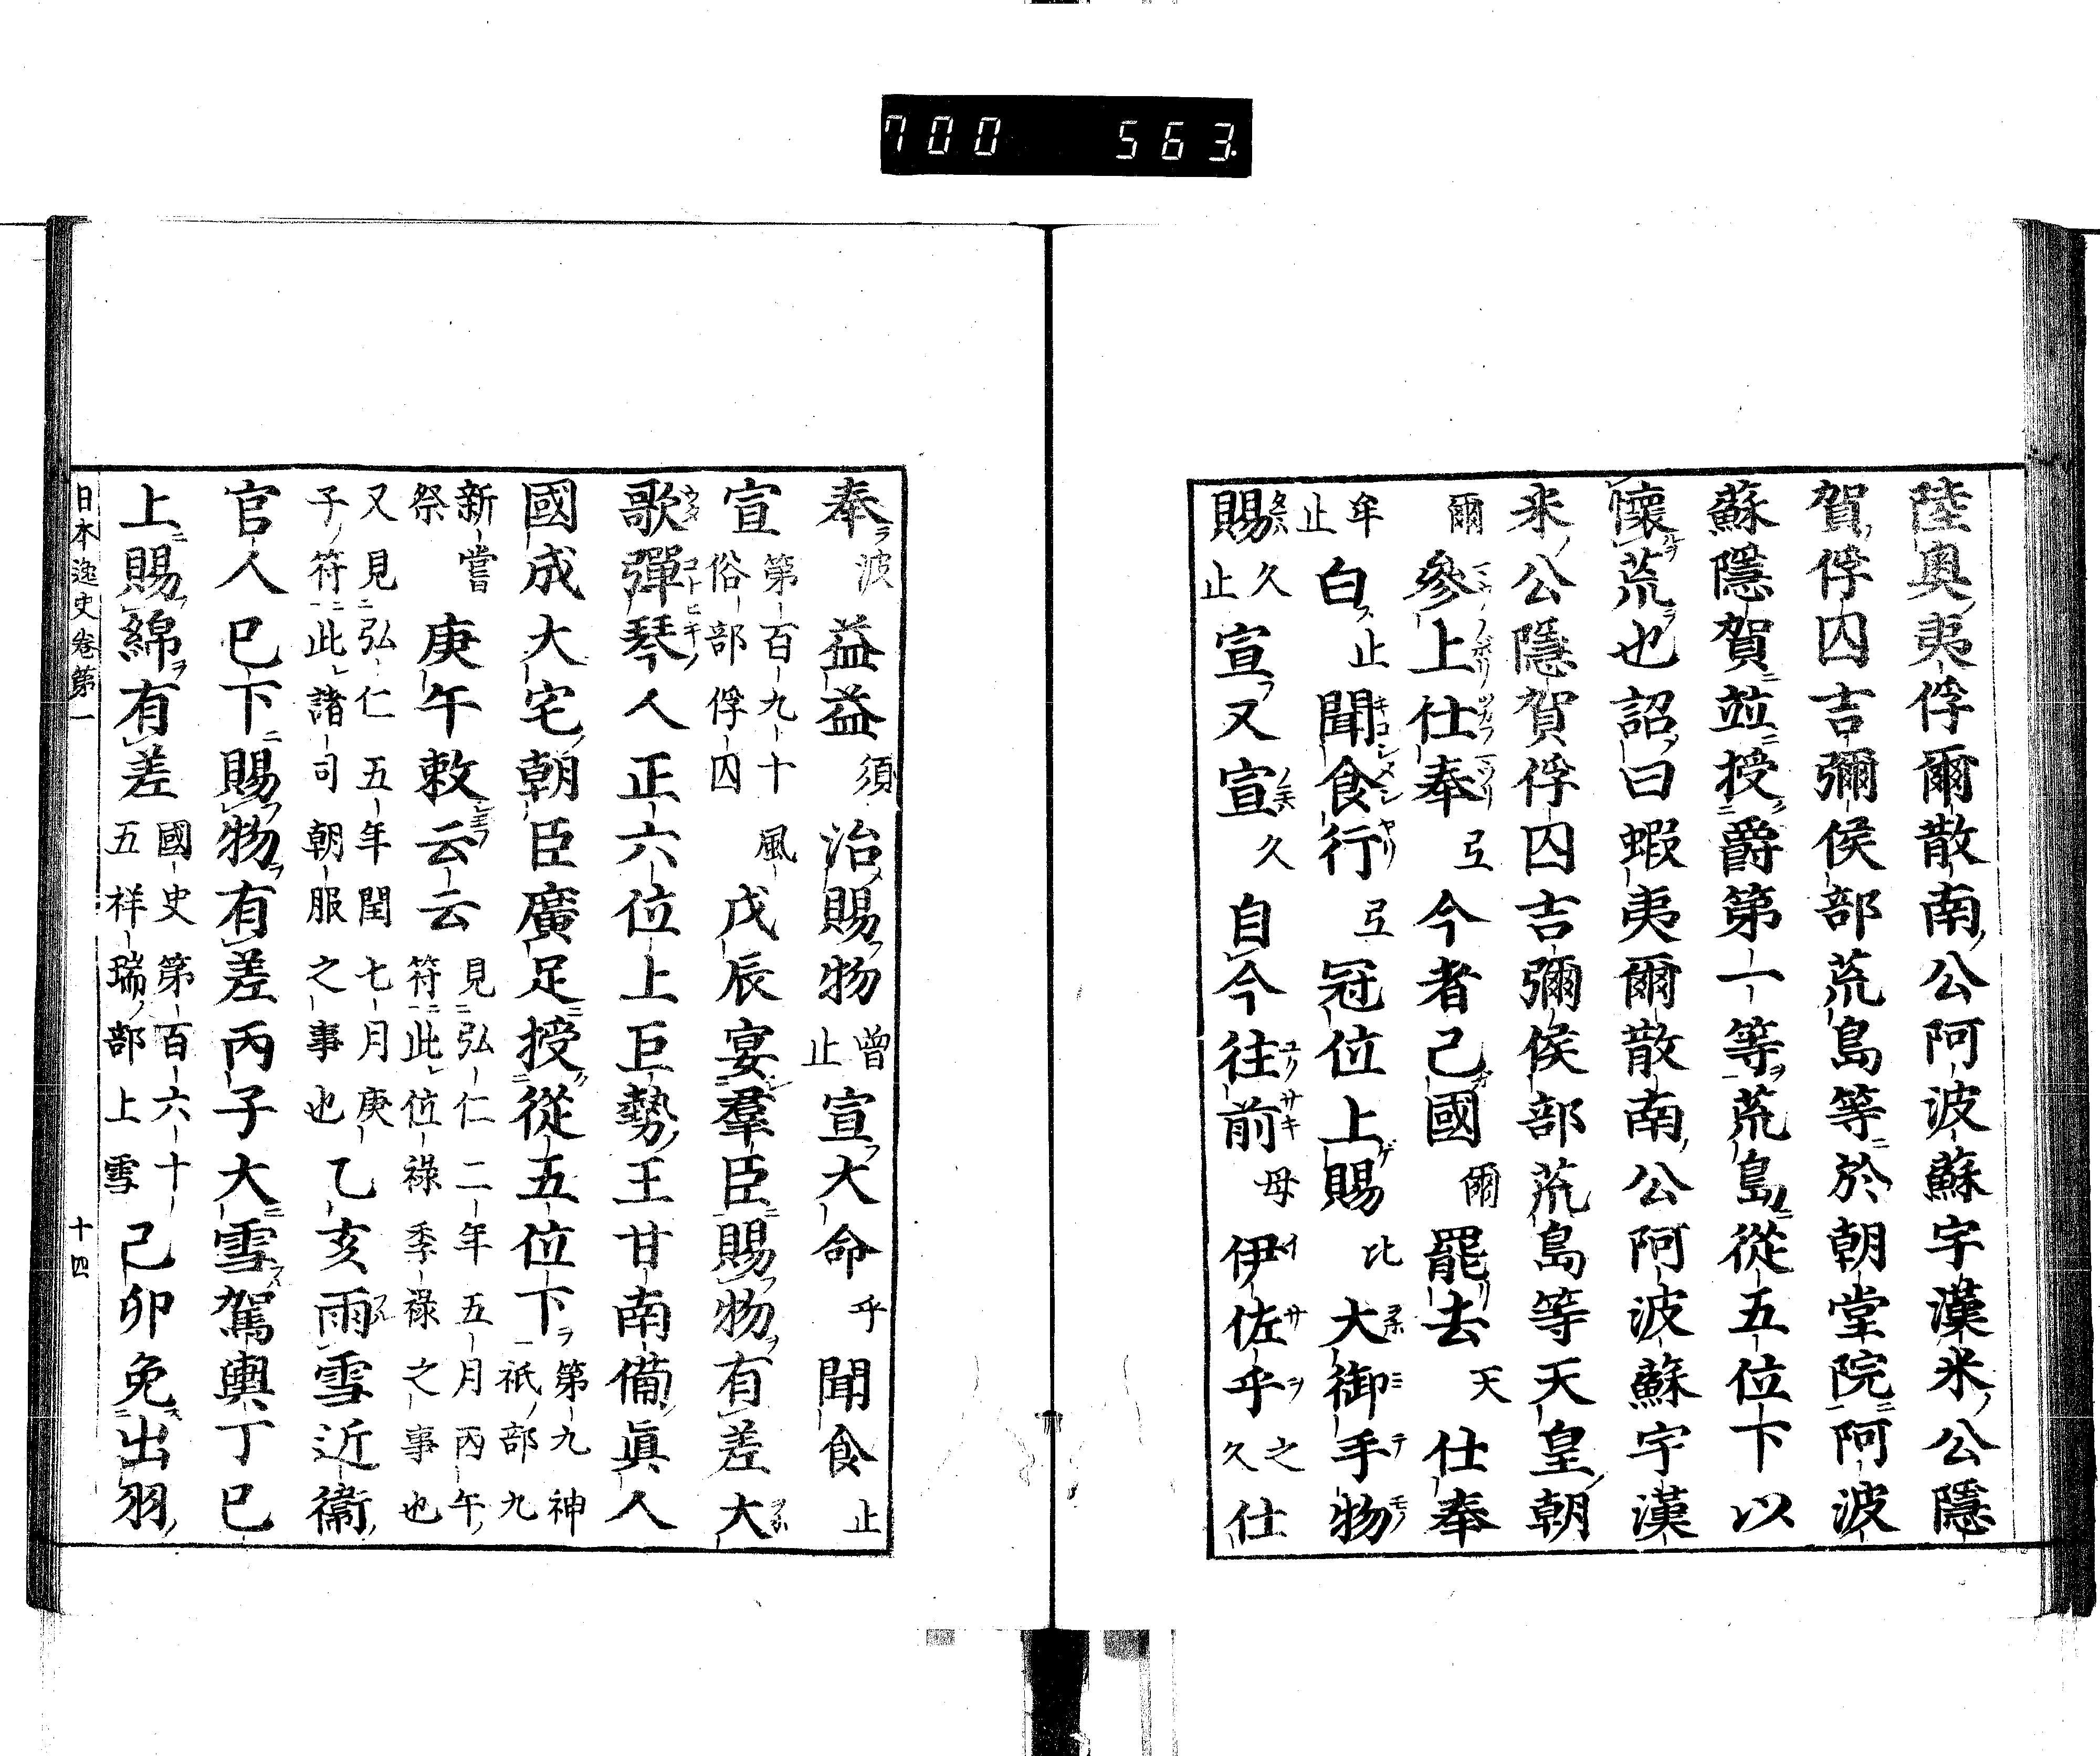 700 563.
陸奧夷俘爾散南公阿波蘇宇漢米公隱
賀俘囚吉彌侯部荒島等於朝堂院阿波
蘇隱賀竝授爵第一等荒島從五位下以
懷荒也詔曰蝦夷爾散南公阿波蘇宇漢
米公隱賀俘囚吉彌侯部荒島等天皇朝
爾參上仕奉弖今者己國爾罷去天仕奉
牟止白止聞食行弖冠位上賜比大御手物
賜久止宣又宣久自今往前母伊佐乎之久仕
奉波益益須治賜物曾止宣大命乎聞食止
宣第百九十風俗部俘囚戊辰宴羣臣賜物有差大
歌彈琴人正六位上巨勢王甘南備眞人
國成大宅朝臣廣足授從五位下第九神祇部九
新嘗祭庚午敕云云見弘仁二年五月丙午符此位祿季祿之事也
又見弘仁五年閏七月庚子符此諸司朝服之事也乙亥雨雪近衞
官人已下賜物有差丙子大雪駕輿丁已
上賜綿有差國史第百六十五祥瑞部上雪己卯免出羽
日本逸史卷第一 十四